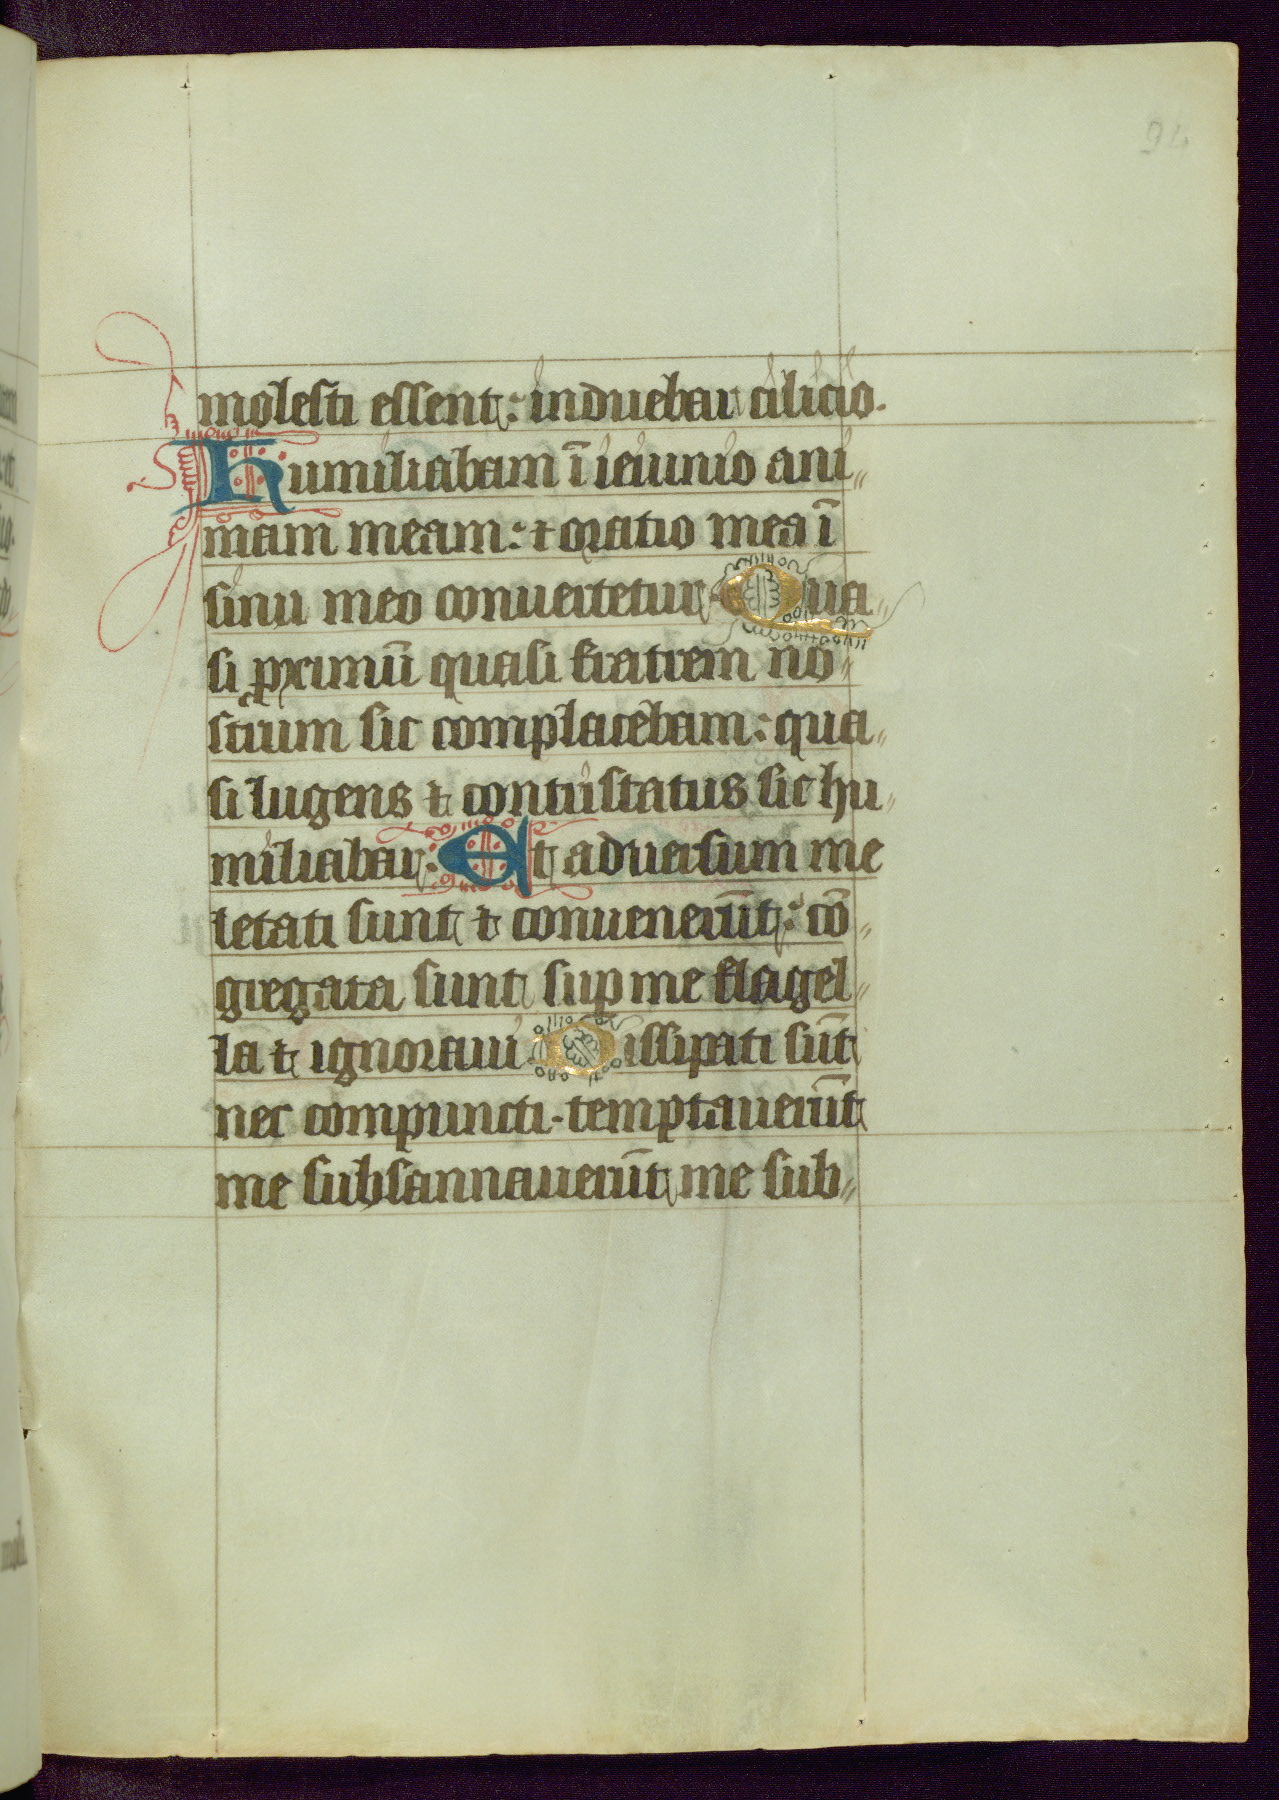 94
molesti essent: induebar cilicio.
Humiliabam ī ieiunio ani„
mam meam: ⁊ oratio mea ī
sinu meo conuertetur. Qua„
si ꝓximū quasi fratrem no„
strum sic complacebam: qua„
si lugens ⁊ contristatus sic hu„
miliabar. Et aduersum me
letati sunt ⁊ conuenerūt: cō„
gregata sunt suꝑ me flagel„
la ⁊ ignoraui Dissipati sūt
nec compuncti. temptauerūt
me subsannauerūt me sub„